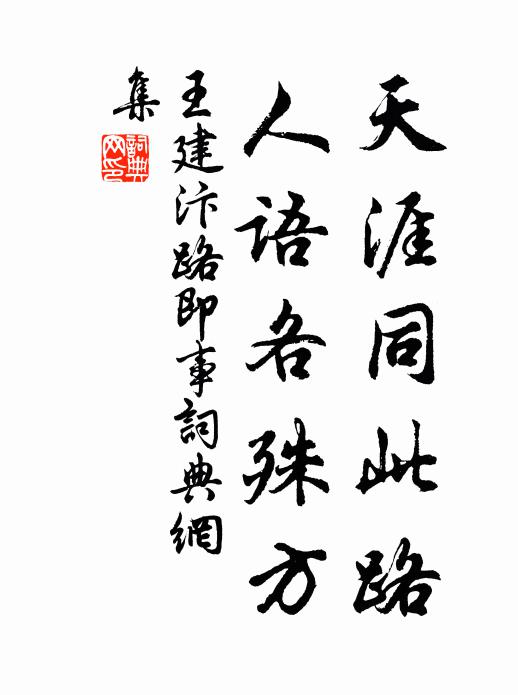 天涯同此路
人語各殊方
王建汴路即事詞典網
集
詞典
网印